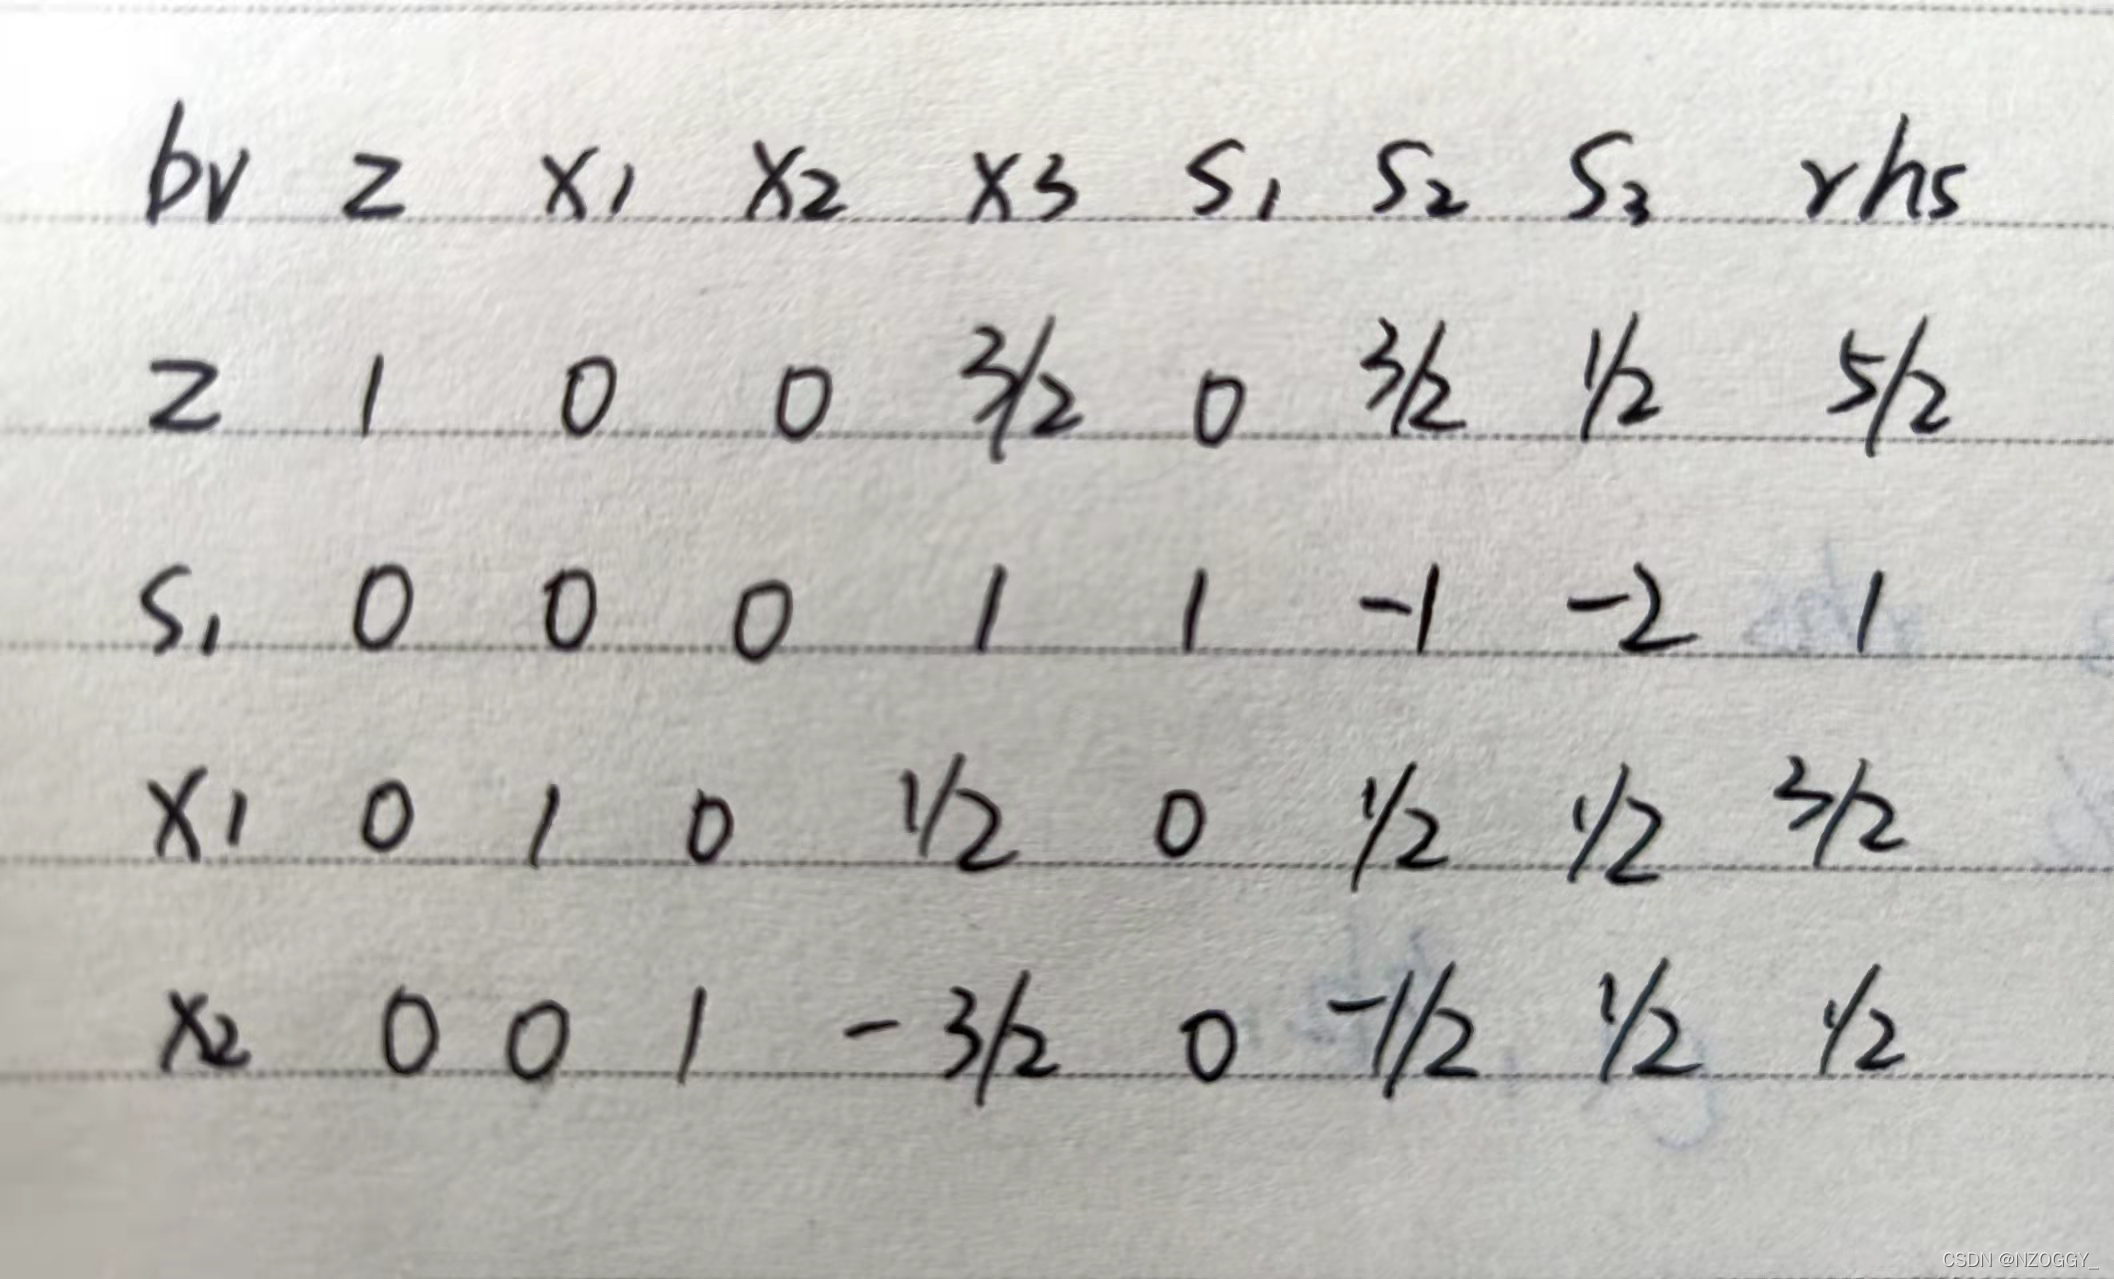 bv z x1 x2 x3 s1 s2 s3 rhs
z 1 0 0 3/2 0 3/2 1/2 5/2
s1 0 0 0 1 1 -1 -2 1
x1 0 1 0 1/2 0 1/2 1/2 3/2
x2 0 0 1 -3/2 0 -1/2 1/2 1/2
CSDN @NZOGGY_